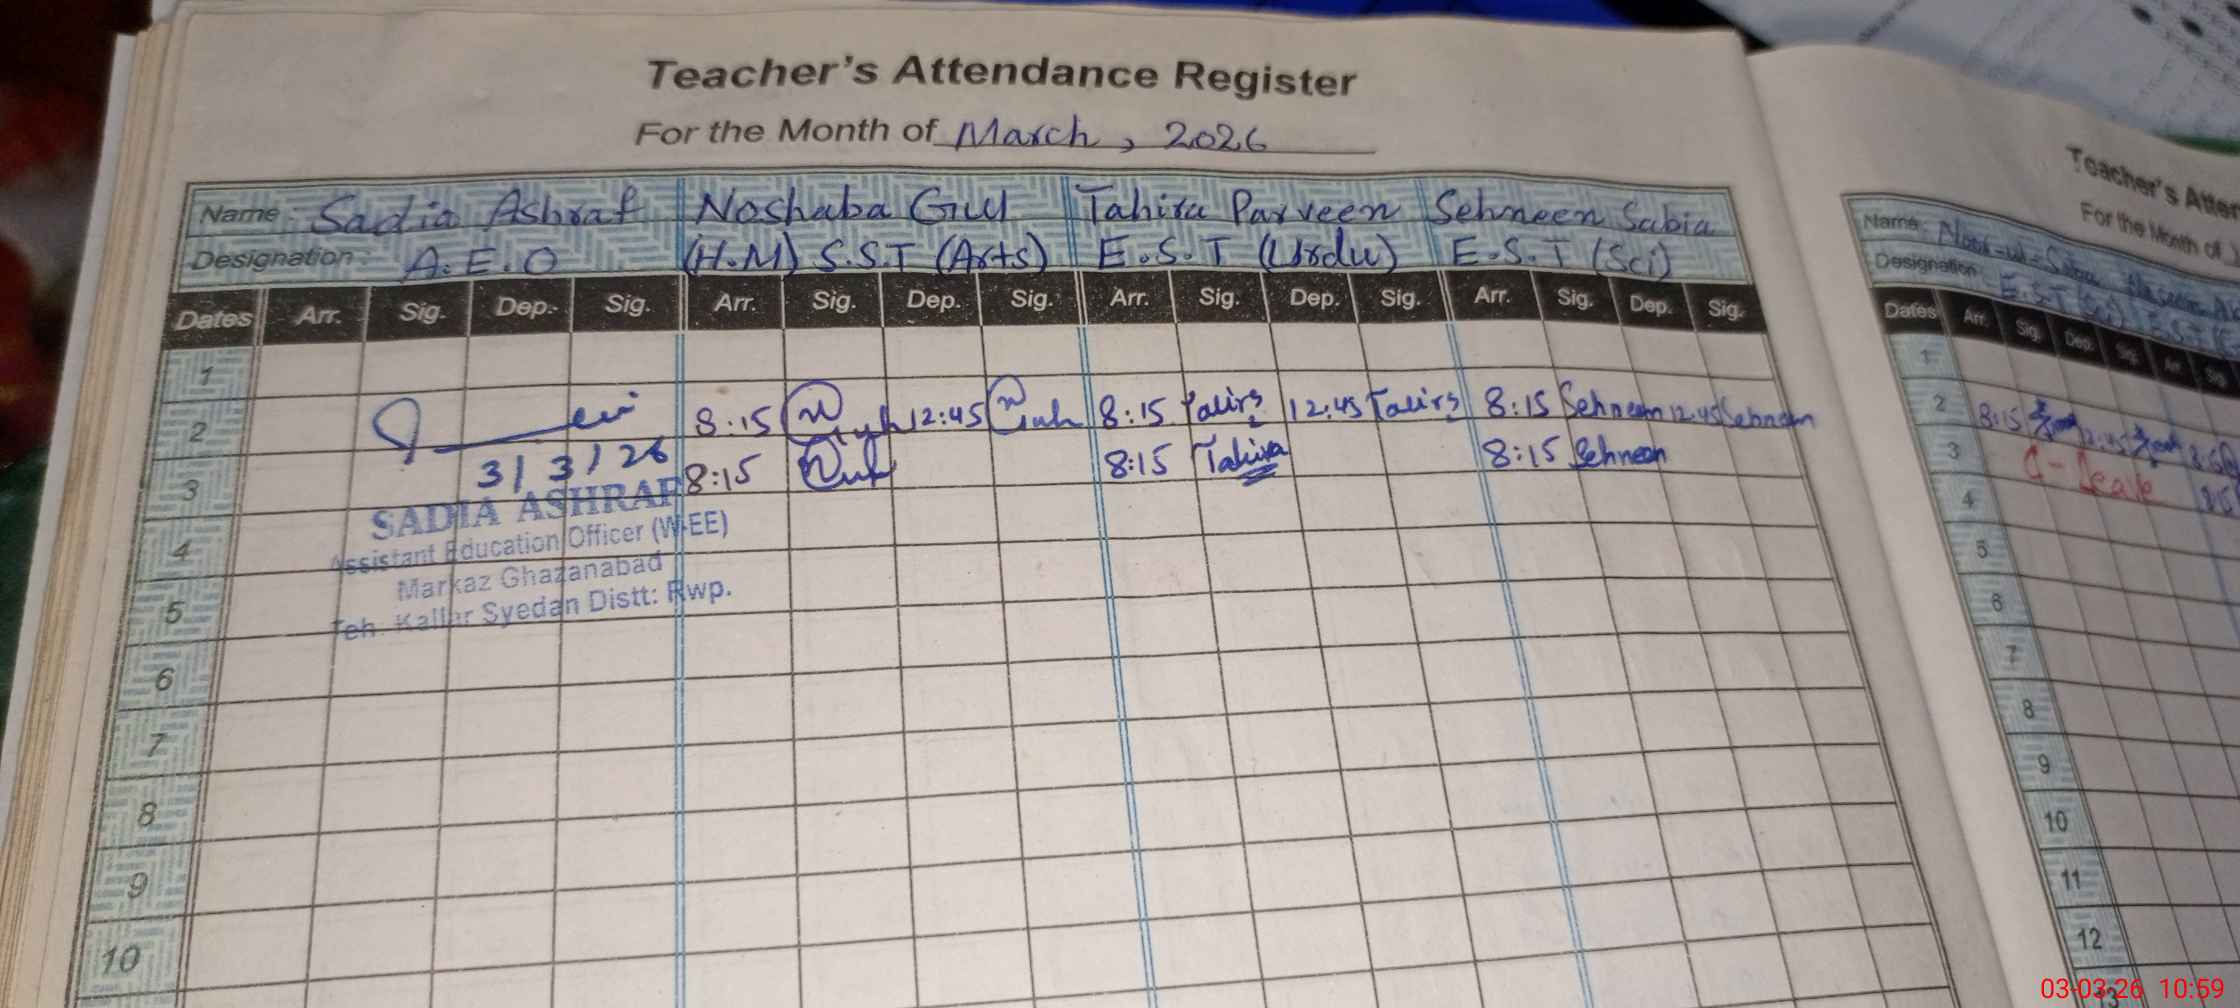 Teacher's Attendance Register
For the Month of March, 2026
Name: Sadia Ashraf Noshaba Gul Tahira Parveen Sehneen Sabia
Designation: A.E.O (H.M) S.S.T (Arts) E.S.T (Urdu) E.S.T (Sci)
Dates Arr. Sig. Dep. Sig. Arr. Sig. Dep. Sig. Arr. Sig. Dep. Sig. Arr. Sig. Dep. Sig.
1
2 8:15 12:45 8:15 12:45 8:15 Sehneen 12:45 Sehneen
3/3/26
3 8:15 8:15 Tahira 8:15 Sehneen
SADIA ASHRAF
4
Assistant Education Officer (W-EE)
Markaz Ghazanabad
5
Teh. Kallar Syedan Distt: Rwp.
6
7
8
9
10
Teacher's Atte
For the Month of
Name:
Designation:
Dates Arr. Sig. Dep. Sig. Arr. Sig.
1
2 8:15
3 C-Leave
4
5
6
7
8
9
10
11
12
13
03-03-26 10:59